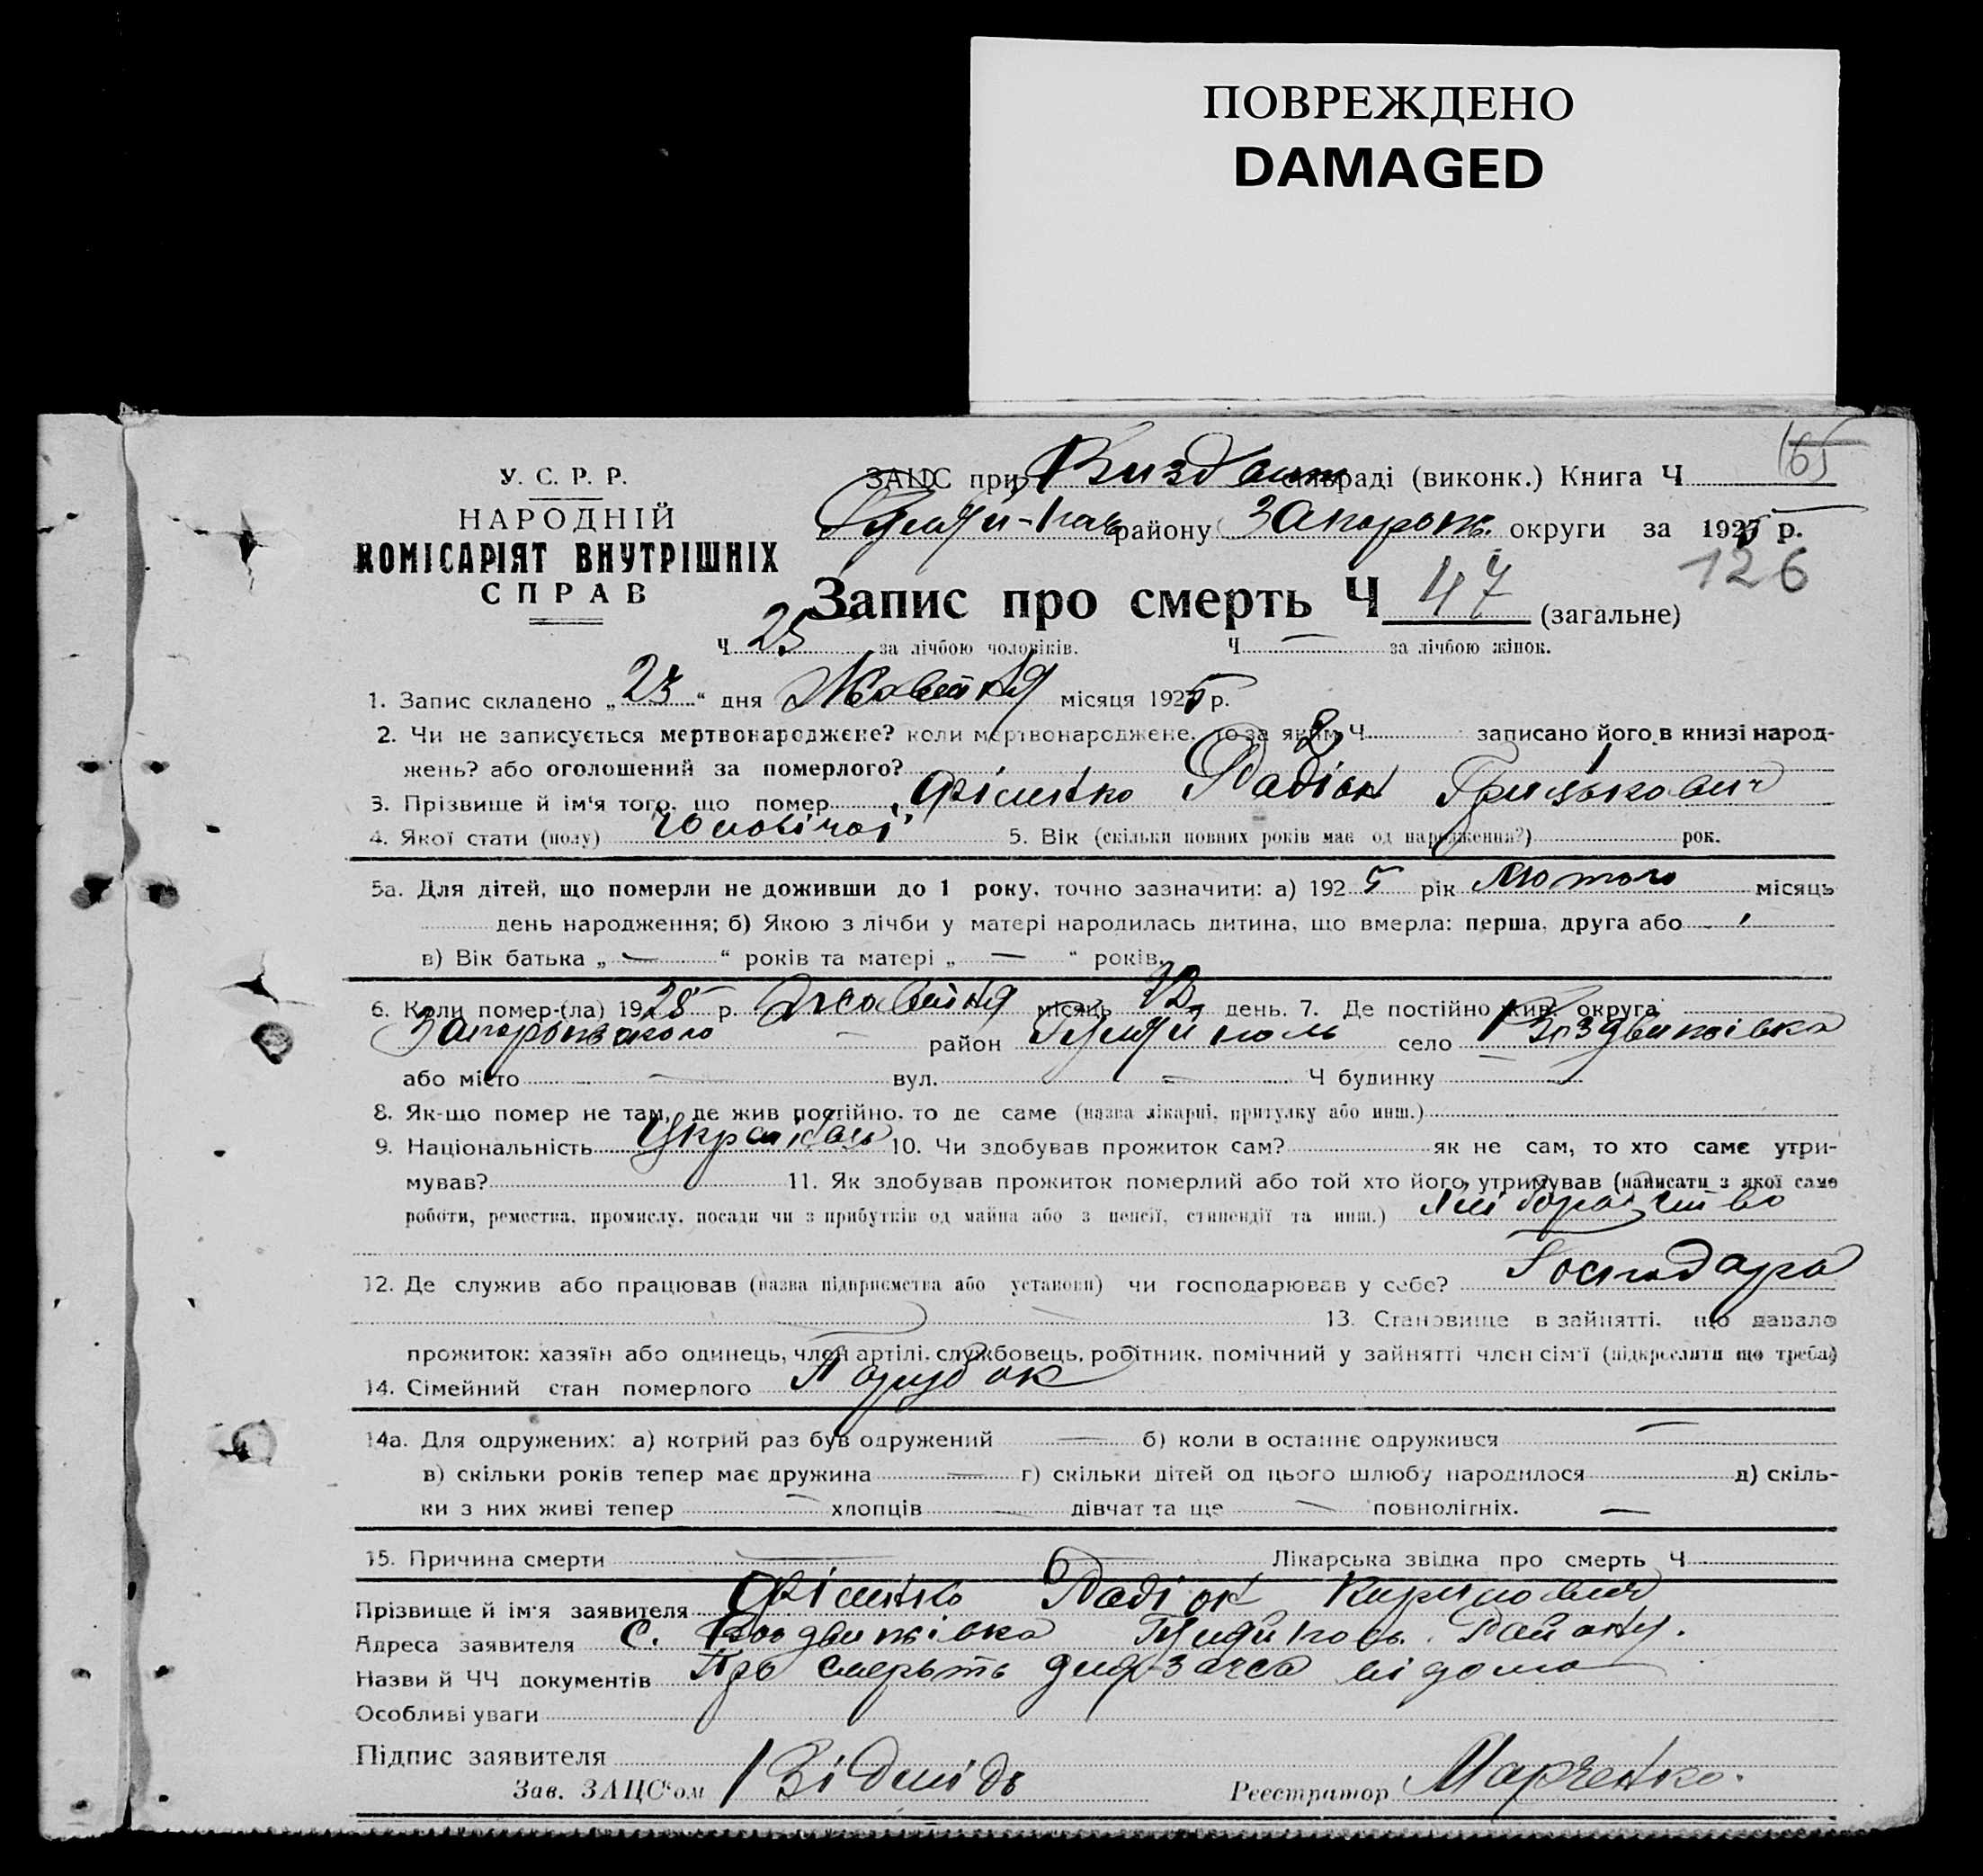 ПОВРЕЖДЕНО
DAMAGED
165
У. С. Р. Р.
НАРОДНІЙ
КОМІСАРІЯТ ВНУТРІШНІХ
СПРАВ
ЗАЦС при раді (виконк.) Книга Ч
Гуляй-Пав району Запорож. округи за 1925 р.
126
Запис про смерть Ч 47 (загальне)
Ч 25 за лічбою чоловіків. Ч — за лічбою жінок.
1. Запис складено „23“ дня Жовтня місяця 1925 р.
2. Чи не записується мертвонароджене? коли мертвонароджене, то за яким Ч записано його в книзі народ-
жень? або оголошений за померлого?
3. Прізвище й ім'я того, що помер Фісенко Радіон
4. Якої стати (полу) Чоловічої 5. Вік (скільки повних років має од народження?) рок.
5а. Для дітей, що померли не доживши до 1 року, точно зазначити: а) 1925 рік Лютого місяць
день народження; б) Якою з лічби у матері народилась дитина, що вмерла: перша, друга або
в) Вік батька „ — “ років та матері „ — “ років.
6. Коли помер-(ла) 1925 р. Жовтня місяць день. 7. Де постійно жив: округа
Запорожського — район Гуляй поль село Воздвижівка
або місто — вул. — Ч будинку
8. Як-що помер не там, де жив постійно, то де саме (назва лікарні, притулку або инш.)
9. Національність 10. Чи здобував прожиток сам? як не сам, то хто саме утри-
мував? 11. Як здобував прожиток померлий або той хто його утримував (написати з якої саме
роботи, ремества, промислу, посади чи з прибутків од майна або з пенсії, стипендії та инш.) Хліборобство
12. Де служив або працював (назва підприємства або установи) чи господарював у себе? Господарю
13. Становище в зайнятті, що давало
прожиток: хазяїн або одинець, член артілі, службовець, робітник, помічний у зайнятті член сім'ї (підкреслити що треба)
14. Сімейний стан померлого Парубок
14а. Для одружених: а) котрий раз був одружений — б) коли в останнє одружився —
в) скільки років тепер має дружина — г) скільки дітей од цього шлюбу народилося д) скіль-
ки з них живі тепер — хлопців — дівчат та ще — повнолітніх. —
15. Причина смерти — Лікарська звідка про смерть Ч
Прізвище й ім'я заявителя Фісенко Радіон Кирилович
Адреса заявителя с. Воздвижівка Гуляйполь. Району.
Назви й ЧЧ документів Про смерьть відома
Особливі уваги
Підпис заявителя
Зав. ЗАЦС'ом
Реєстратор Марченко.